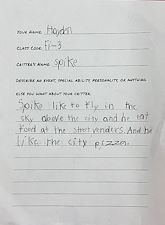 YOUR NAME: Hayden
CLASS CODE: F1-3
CRITTER'S NAME: Spike
DESCRIBE AN EVENT, SPECIAL ABILITY, PERSONALITY, OR ANYTHING
ELSE YOU WANT ABOUT YOUR CRITTER.
Spike like to fly in the
sky above the city and he eat
food at the street venders. And he
like the city pizza.